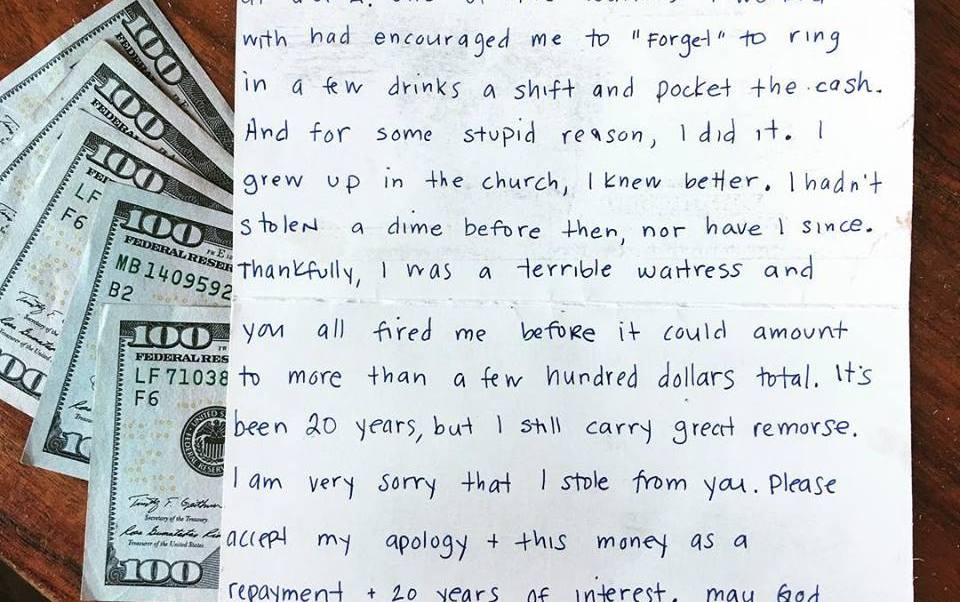 100
FEDERAL
100
FEDERA
100
LF
F6
100
FEDERAL RESER
MB1409592
B2
100
FEDERAL RES
LF71038
F6
Secretary of the Treasury
Treasurer of the United States
100
with had encouraged me to "Forget" to ring
in a few drinks a shift and pocket the cash.
And for some stupid reason, I did it. I
grew up in the church, I knew better. I hadn't
stolen a dime before then, nor have I since.
Thankfully, I was a terrible waitress and
you all fired me before it could amount
to more than a few hundred dollars total. It's
been 20 years, but I still carry great remorse.
I am very sorry that I stole from you. Please
accept my apology + this money as a
repayment + 20 years of interest. may God